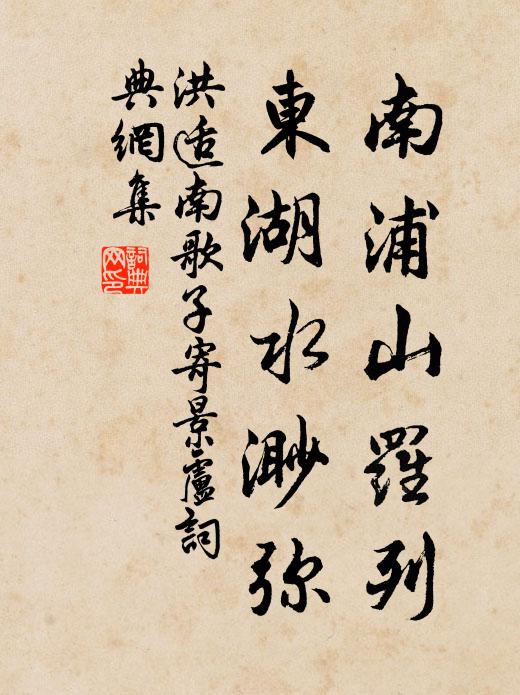 南浦山羅列
東湖水渺弥
洪适南歌子寄景盧詞
典網集
詞典網印